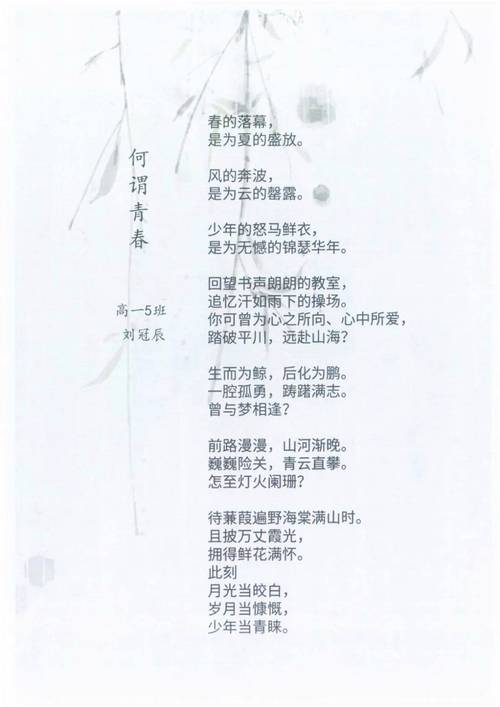 何谓青春
高一5班
刘冠辰
春的落幕，
是为夏的盛放。
风的奔波，
是为云的罄露。
少年的怒马鲜衣，
是为无憾的锦瑟华年。
回望书声朗朗的教室，
追忆汗如雨下的操场。
你可曾为心之所向、心中所爱，
踏破平川，远赴山海？
生而为鲸，后化为鹏。
一腔孤勇，踌躇满志。
曾与梦相逢？
前路漫漫，山河渐晚。
巍巍险关，青云直攀。
怎至灯火阑珊？
待蒹葭遍野海棠满山时。
且披万丈霞光，
拥得鲜花满怀。
此刻
月光当皎白，
岁月当慷慨，
少年当青睐。